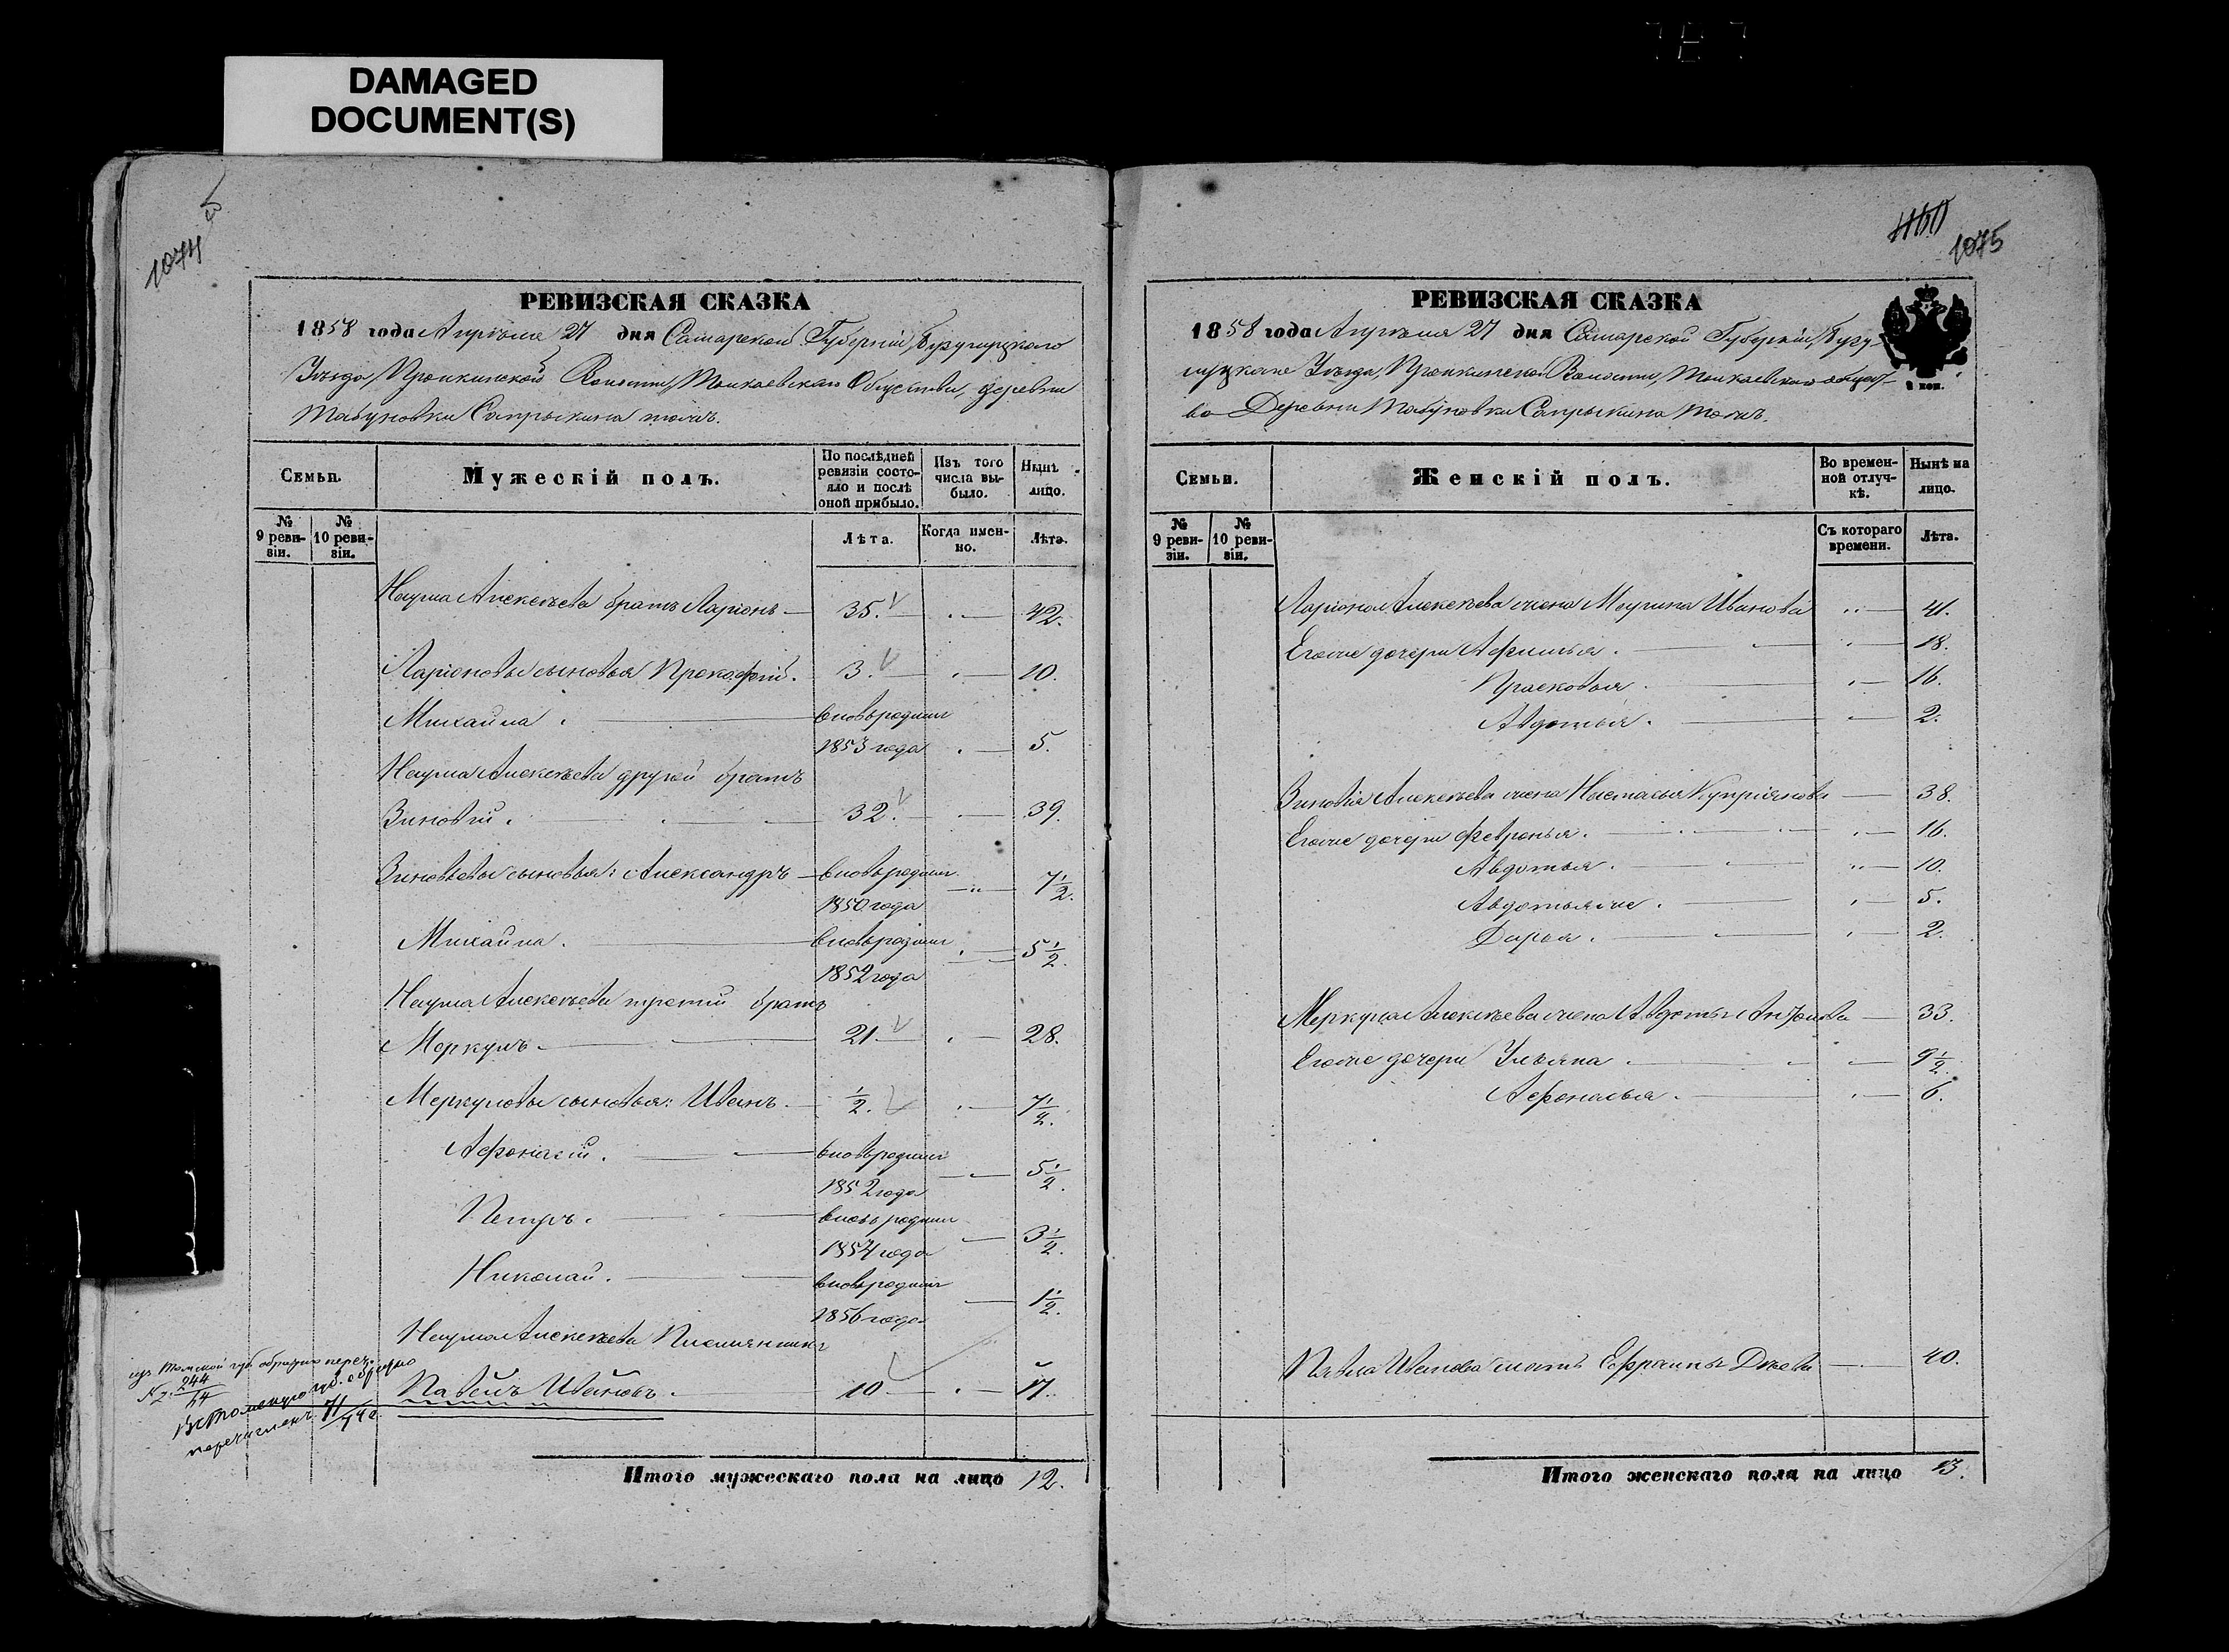 DAMAGED
DOCUMENT(S)
1074
РЕВИЗСКАЯ СКАЗКА
1858 года Апрѣля 27 дня Самарской Губерніи, Бузулуцкаго
Уѣзда, Пронкинской Волости, Общества, деревни
Табуновки Сапрыкина тожъ.
Семьи.
Мужескій полъ.
По послѣдней ревизіи состояло и послѣ оной прибыло.
Изъ того числа выбыло.
Нынѣ на лицо.
№ 9 ревизіи.
№ 10 ревизіи.
Лѣта.
Когда именно.
Лѣта.
Наума Алексѣева братъ Ларіонъ — 35. " — 42.
Ларіоновы сыновья Прокофій. 3. " — 10.
Михайла. — вновьрожден
1853 года " — 5.
Наума Алексѣева другой братъ
Зиновій. — 32. " — 39.
Зиновьевы сыновья: Александръ — вновьрожден
1850 года — " — 7 1/2.
Михайла. — вновьрожден
1852 года " — 5 1/2.
Наума Алексѣева третій братъ
Меркулъ. — 21. " — 28.
Меркуловы сыновья: Иванъ. — 1/2. " — 7 1/2.
Афонасій. — вновьрожден
1852 года — 5 1/2.
Петръ. — вновьрожден
1854 года — 3 1/2.
Николай. — вновьрожден
1856 года — 1 1/2.
Наума Алексѣева Племянникъ
Павелъ Ивановъ. — 10 — " — 17.
изъ Томской губ. обратно
244
44
В Томскую губ. обратно
перечислен 71
Итого мужескаго пола на лицо 12.
1160
1075
РЕВИЗСКАЯ СКАЗКА
1858 года Апрѣля 27 дня Самарской Губерніи, Бузу-
луцкаго Уѣзда, Пронкинской Волости, общест-
ва Деревни Табуновки Сапрыкина тожъ.
2 коп.
Семьи.
Женскій полъ.
Во временной отлучкѣ.
Нынѣ на лицо.
№ 9 ревизіи.
№ 10 ревизіи.
Съ котораго времени.
Лѣта.
Ларіона Алексѣева жена Марина Иванова " — 41.
Егоже дочери Афимья. — " — 18.
Прасковья. — " — 16.
Авдотья. — " — 2.
Зиновія Алексѣева жена Настасья Купріянова — 38.
Егоже дочери Февронья. — " — 16.
Авдотья. — " — 10.
Авдотьяже. — " — 5.
Дарья. — " — 2.
Меркула Алексѣева жена Авдотья — 33.
Егоже дочери Ульяна. — 9 1/2.
Афонасья. — " — 6.
Павла Иванова мать — 40.
Итого женскаго пола на лицо 13.